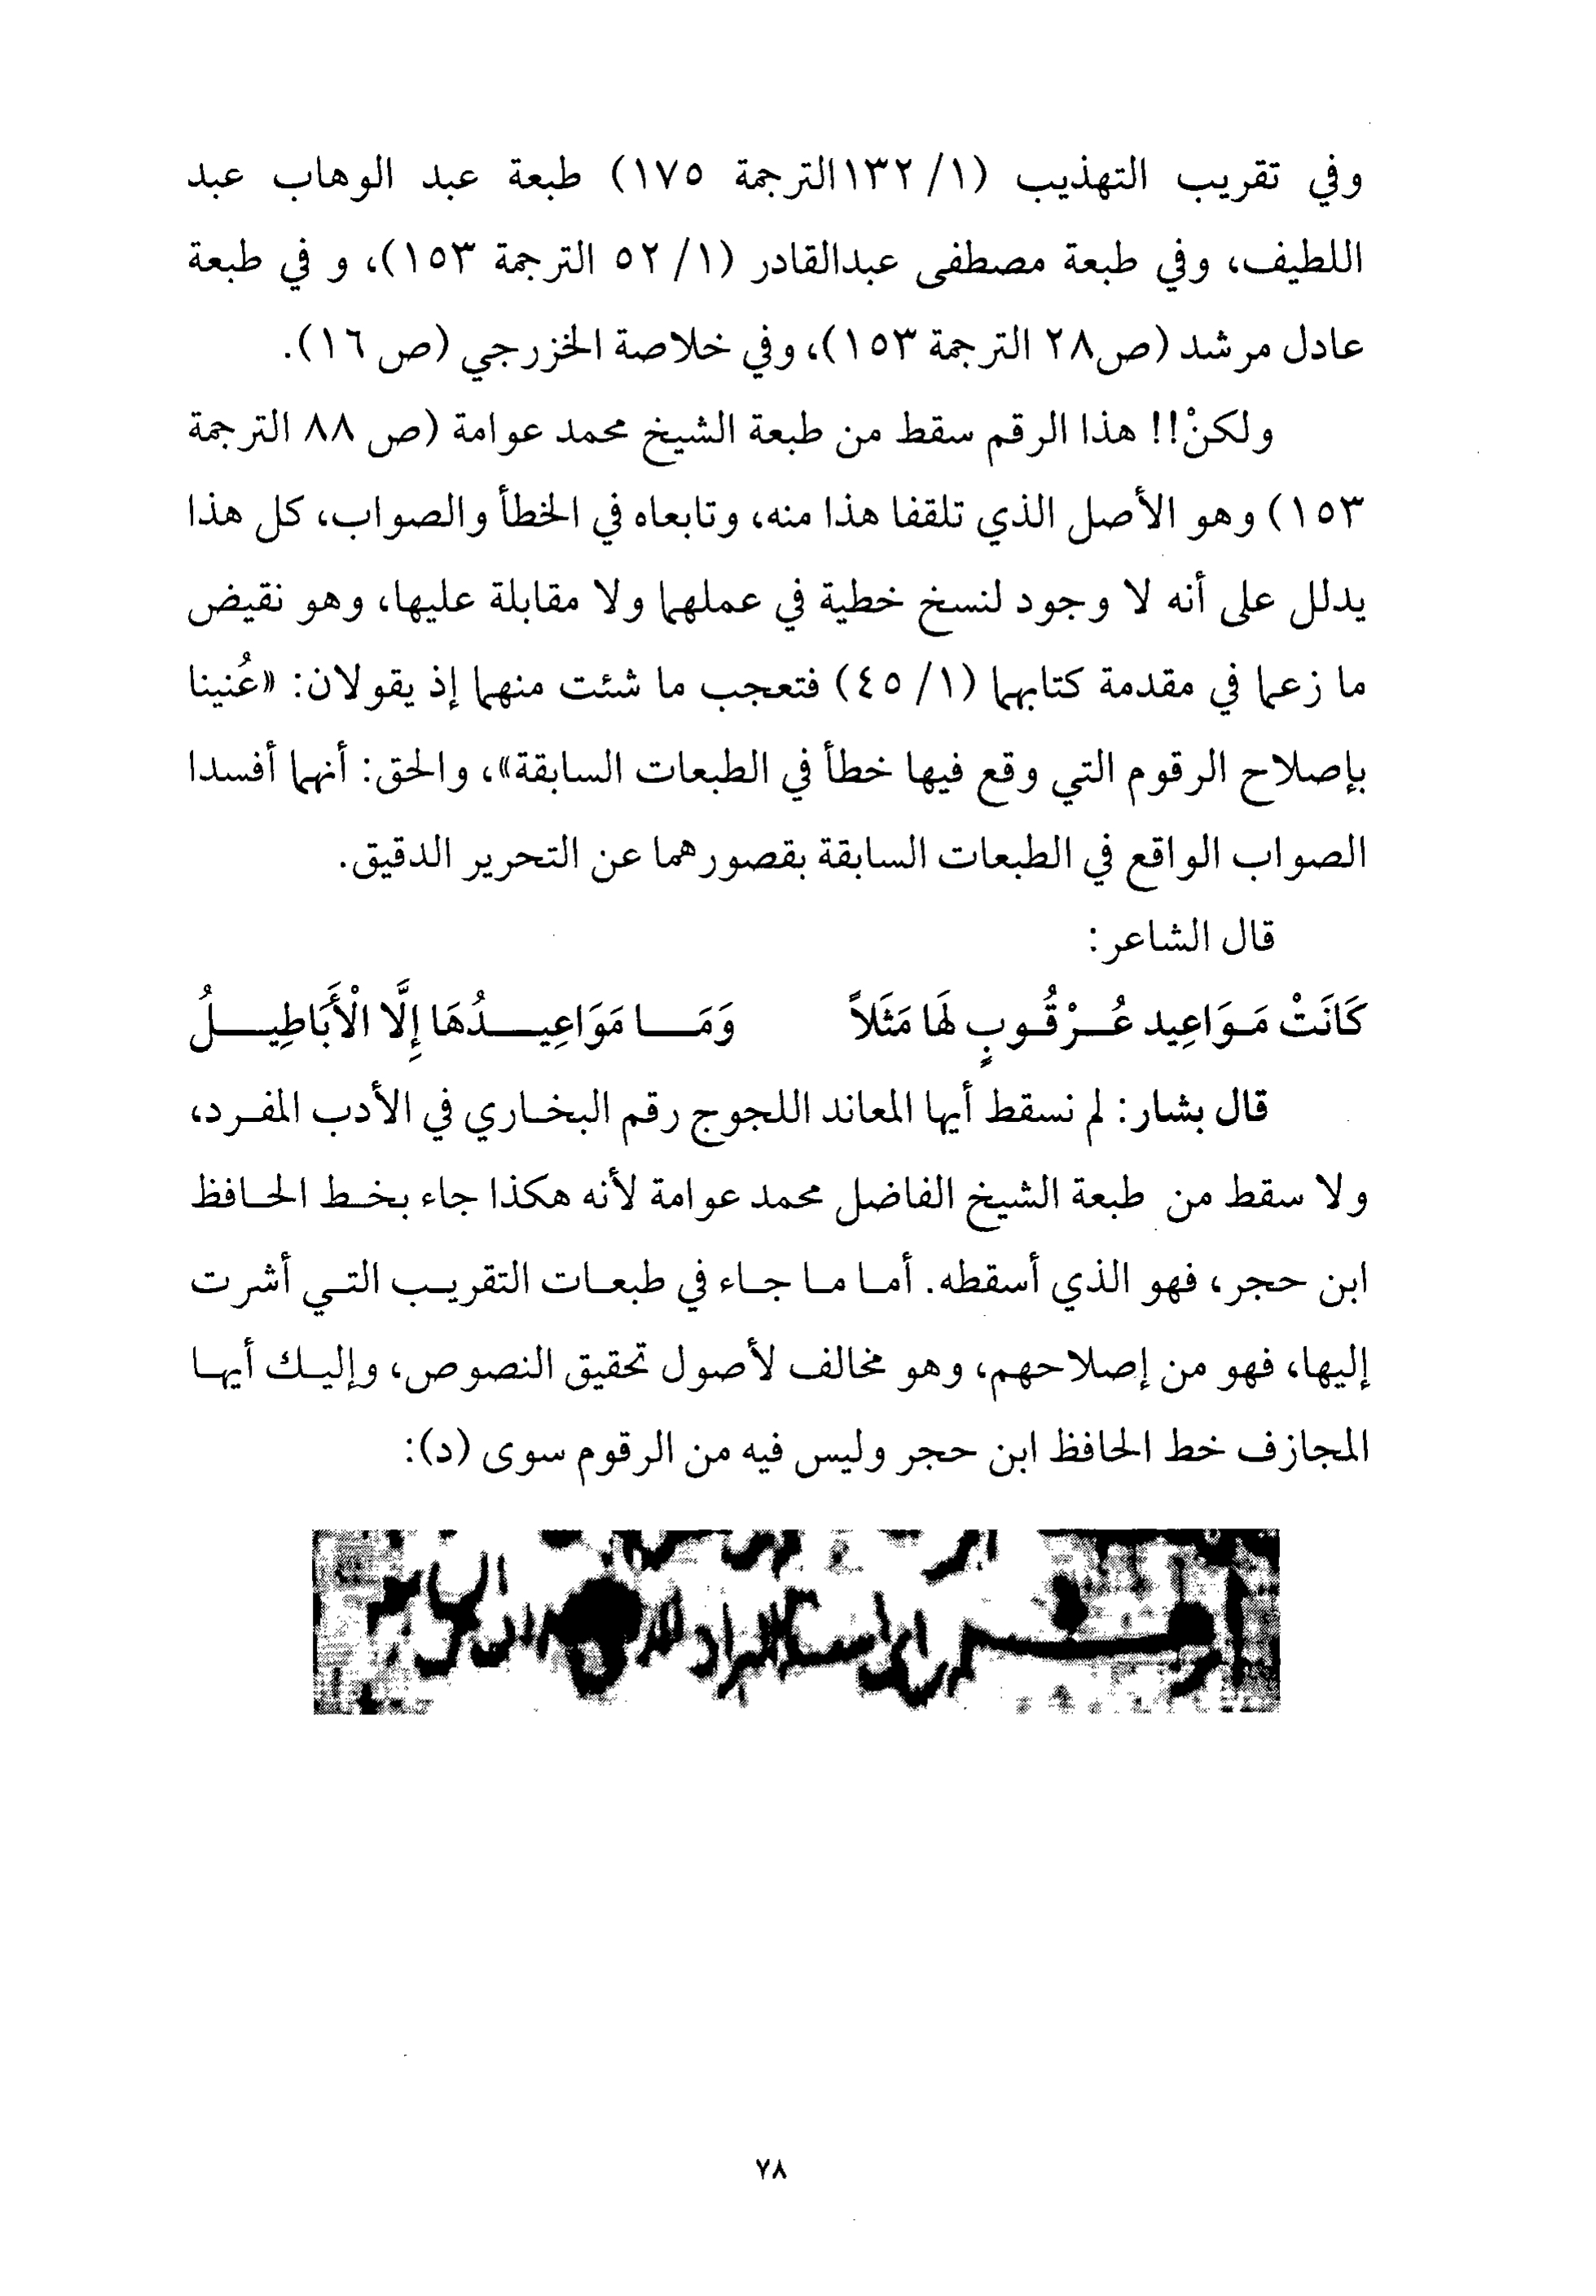 وفي تقريب التهذيب (١/ ١٣٢الترجمة ١٧٥) طبعة عبد الوهاب عبد
اللطيف، وفي طبعة مصطفى عبدالقادر (١/ ٥٢ الترجمة ١٥٣)، و في طبعة
عادل مرشد (ص٢٨ الترجمة ١٥٣)، وفي خلاصة الخزرجي (ص ١٦).
ولكنْ!! هذا الرقم سقط من طبعة الشيخ محمد عوامة (ص ٨٨ الترجمة
١٥٣) وهو الأصل الذي تلقفا هذا منه، وتابعاه في الخطأ والصواب، كل هذا
يدلل على أنه لا وجود لنسخ خطية في عملهما ولا مقابلة عليها، وهو نقيض
ما زعما في مقدمة كتابهما (١/ ٤٥) فتعجب ما شئت منهما إذ يقولان: «عُنينا
بإصلاح الرقوم التي وقع فيها خطأ في الطبعات السابقة»، والحق: أنهما أفسدا
الصواب الواقع في الطبعات السابقة بقصورهما عن التحرير الدقيق.
قال الشاعر:
كَانَتْ مَوَاعِيد عُرْقُوبٍ لَهَا مَثَلاً وَمَا مَوَاعِيدُهَا إِلَّا الْأَبَاطِيلُ
قال بشار: لم نسقط أيها المعاند اللجوج رقم البخاري في الأدب المفرد،
ولا سقط من طبعة الشيخ الفاضل محمد عوامة لأنه هكذا جاء بخط الحافظ
ابن حجر، فهو الذي أسقطه. أما ما جاء في طبعات التقريب التي أشرت
إليها، فهو من إصلاحهم، وهو مخالف لأصول تحقيق النصوص، وإليك أيها
المجازف خط الحافظ ابن حجر وليس فيه من الرقوم سوى (د):
٧٨